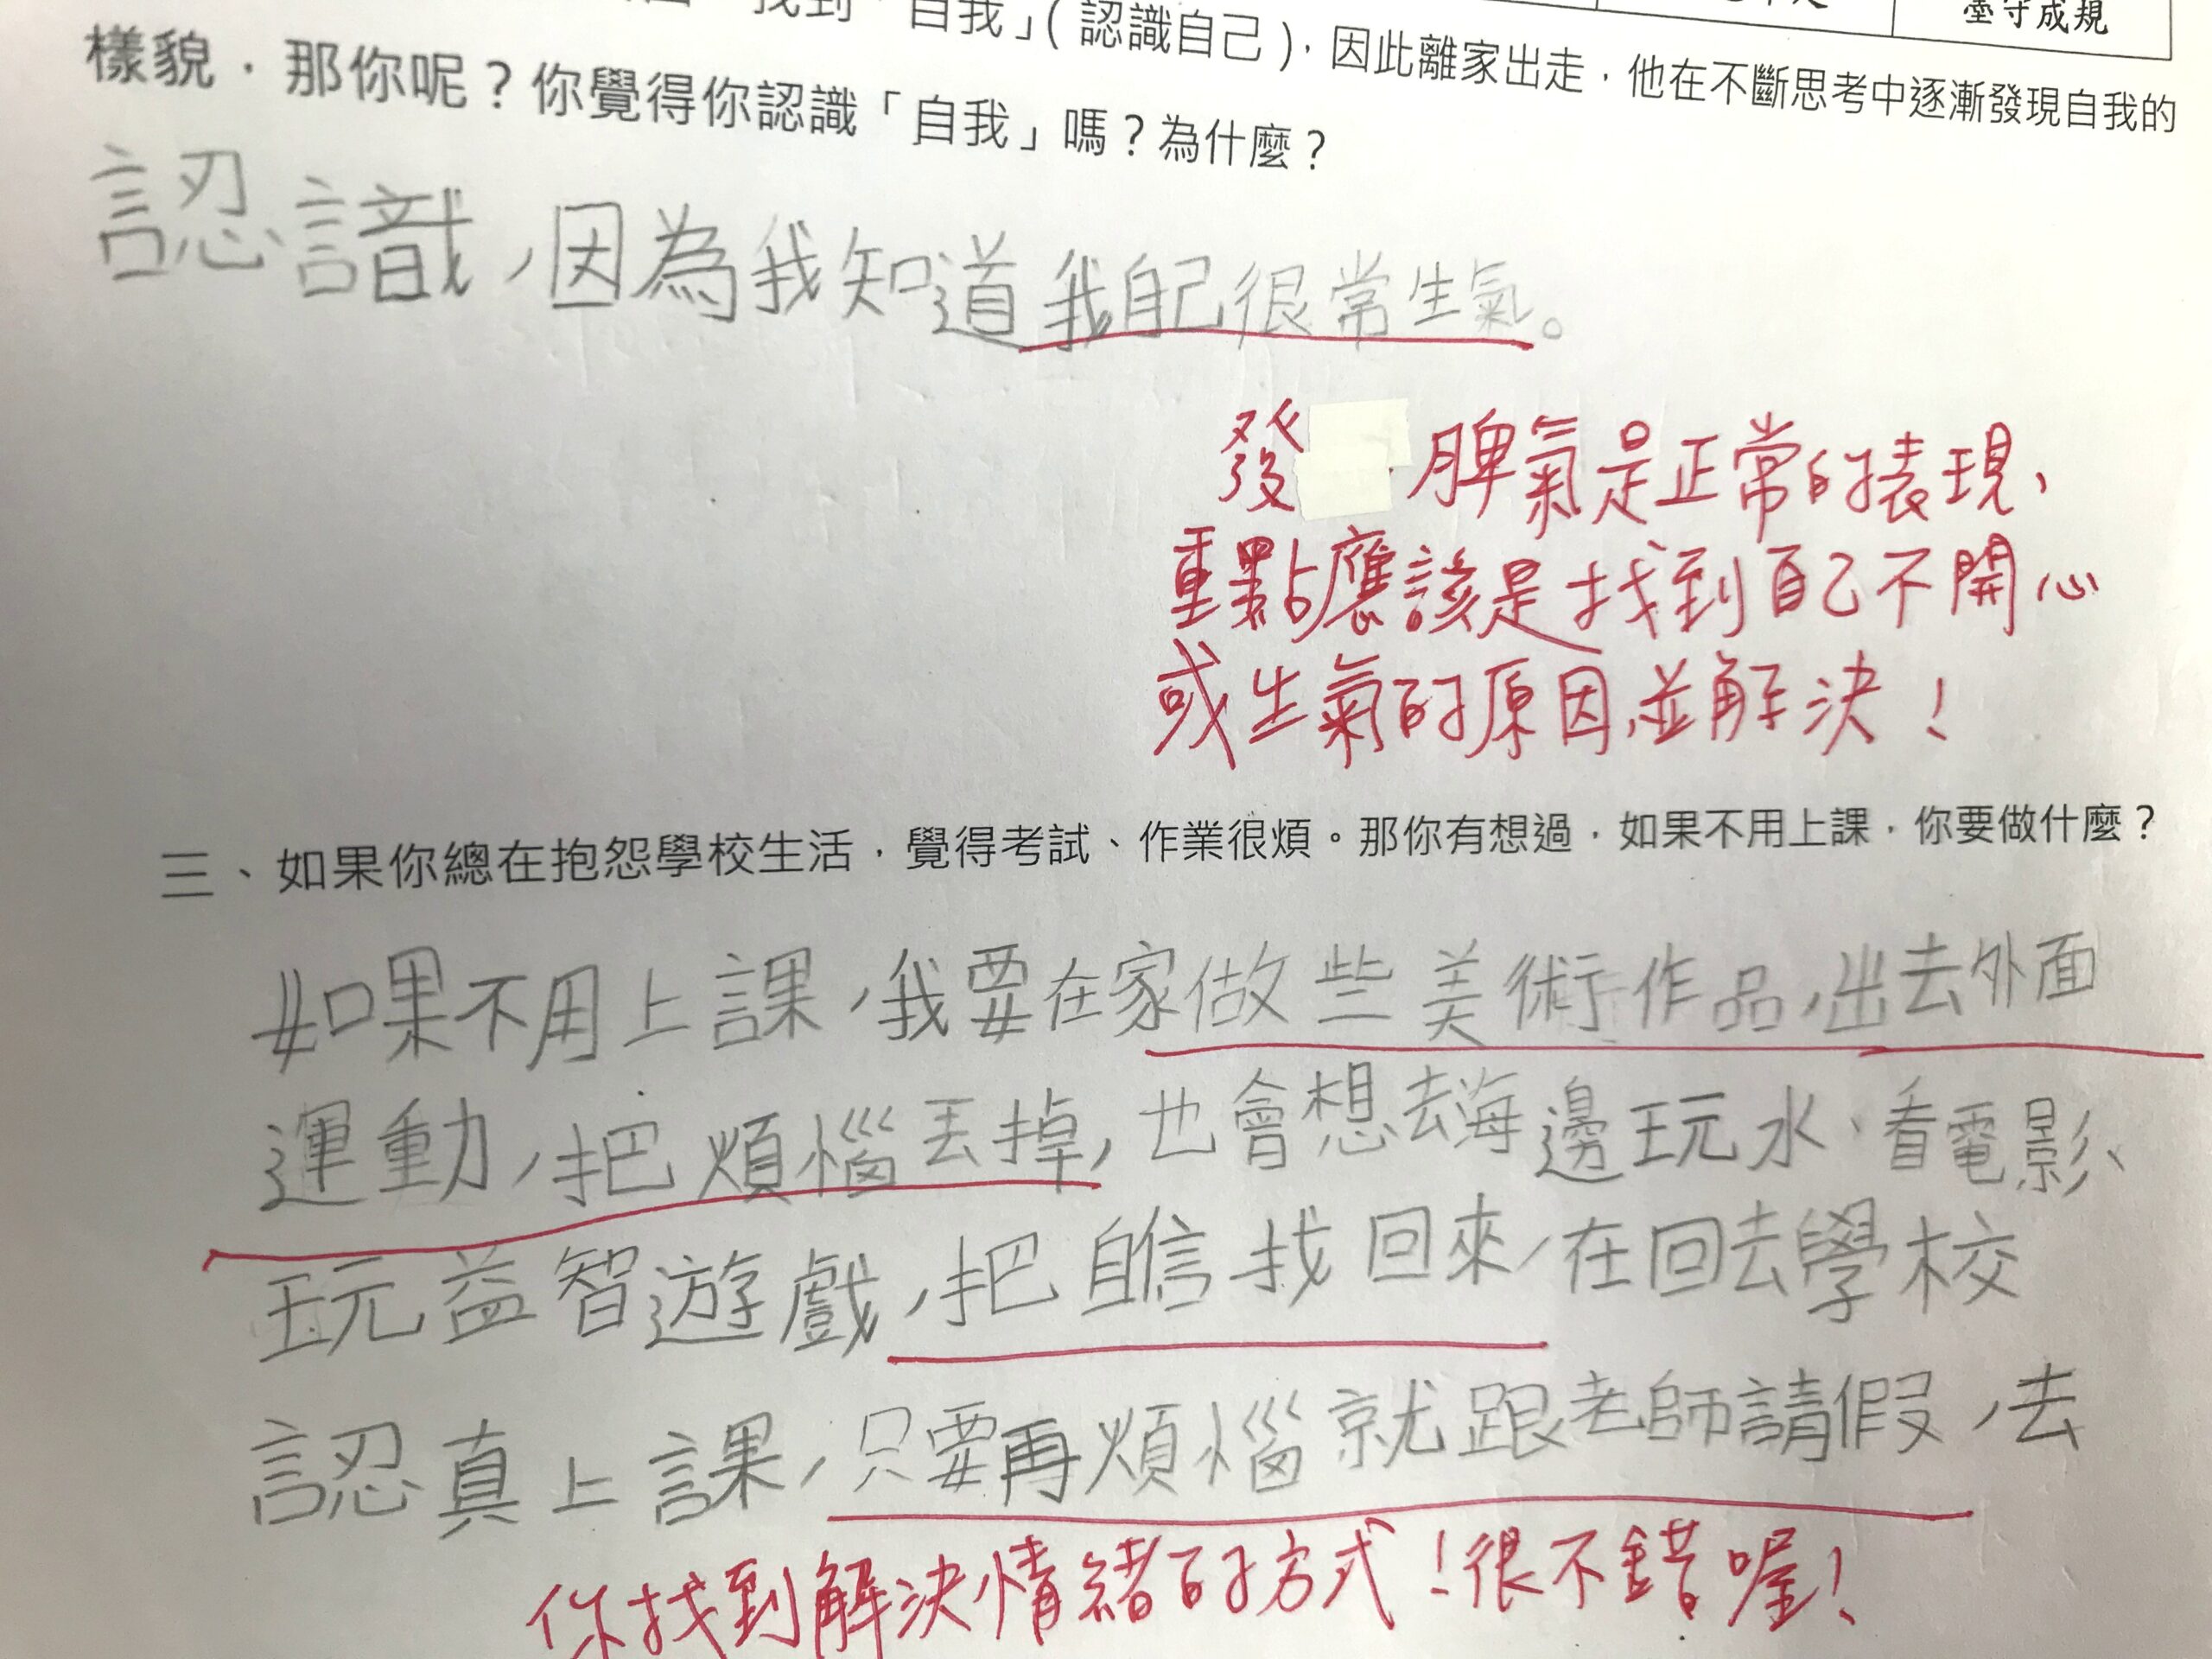 墨守成規
找到「自我」(認識自己)，因此離家出走，他在不斷思考中逐漸發現自我的
樣貌，那你呢？你覺得你認識「自我」嗎？為什麼？
認識，因為我知道我自己很常生氣。
發 脾氣是正常的表現、
重點應該是找到自己不開心
或生氣的原因，並解決！
三、如果你總在抱怨學校生活，覺得考試、作業很煩。那你有想過，如果不用上課，你要做什麼？
如果不用上課，我要在家做些美術作品，出去外面
運動，把煩惱丟掉，也會想去海邊玩水、看電影、
玩益智遊戲，把自信找回來，在回去學校
認真上課，只要再煩惱就跟老師請假，去
你找到解決情緒的方式！很不錯喔！